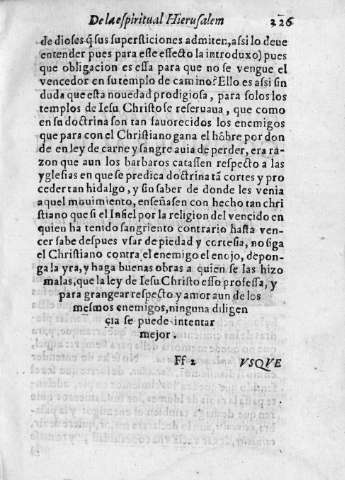 De la espiritual Hierusalem 226
de dioses q̃ sus supersticiones admiten, assi lo deue
entender pues para este effecto la introduxo) pues
que obligacion es essa para que no se vengue el
vencedor en su templo de camino? Ello es assi sin
duda que esta nouedad prodigiosa, para solos los
templos de Iesu Christo se reseruaua, que como
en su doctrina son tan fauorecidos los enemigos
que para con el Christiano gana el hõbre por don
de en ley de carne y sangre auia de perder, era ra-
zon que aun los barbaros catassen respecto a las
yglesias en que se predica doctrina tã cortes y pro
ceder tan hidalgo, y sin saber de donde les venia
aquel mouimiento, enseñasen con hecho tan chri
stiano que si el Infiel por la religion del vencido en
quien ha tenido sangriento contrario hasta ven-
cer sabe despues vsar de piedad y cortesia, no siga
el Christiano contra el enemigo el enojo, depon-
ga la yra, y haga buenas obras a quien se las hizo
malas, que la ley de Iesu Christo esso professa, y
para grangear respecto y amor aun de los
mesmos enemigos, ninguna diligen
cia se puede intentar
mejor.
Ff 2 VSQVE